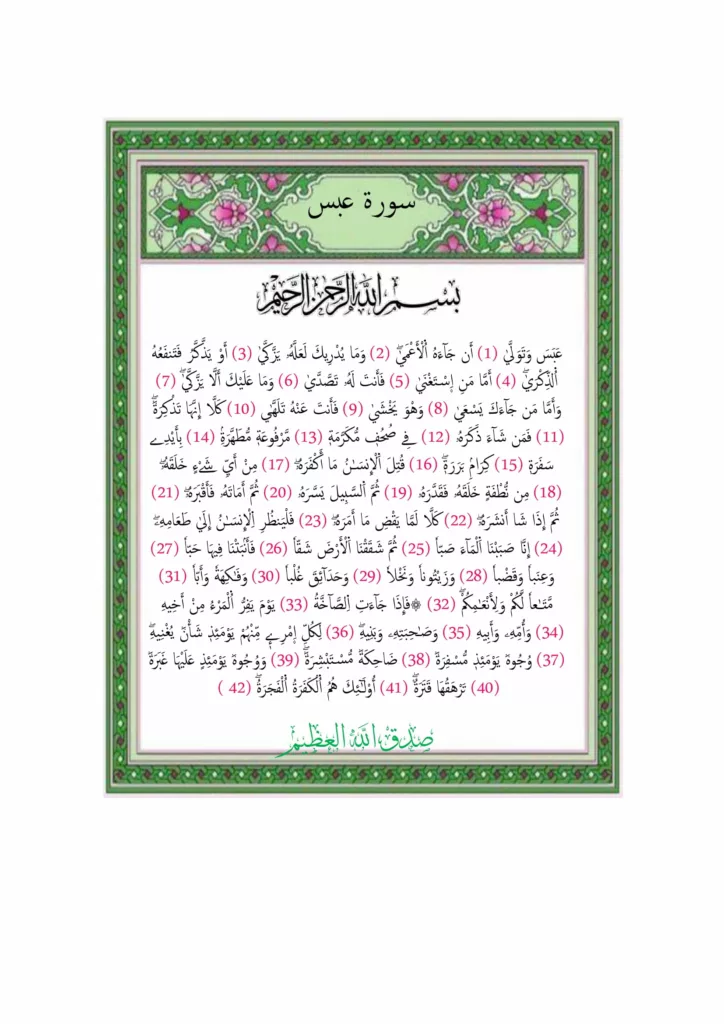 سورة عبس
بسم الله الرحمن الرحيم
عَبَسَ وَتَوَلَّىٰ (1) أَن جَآءَهُ اُ۬لْأَعْمَىٰۖ (2) وَمَا يُدْرِيكَ لَعَلَّهُۥ يَزَّكَّىٰ (3) أَوْ يَذَّكَّرُ فَتَنفَعُهُ
اُ۬لذِّكْرَىٰۖ (4) أَمَّا مَنِ اِ۪سْتَغْنَىٰ (5) فَأَنتَ لَهُۥ تَصَّدَّىٰ (6) وَمَا عَلَيْكَ أَلَّا يَزَّكَّىٰۖ (7)
وَأَمَّا مَن جَآءَكَ يَسْعَىٰ (8) وَهْوَ يَخْشَىٰ (9) فَأَنتَ عَنْهُ تَلَهَّىٰ (10) كَلَّا إِنَّهَا تَذْكِرَةٞۖ
(11) فَمَن شَآءَ ذَكَرَهُۥ (12) فِے صُحُفٖ مُّكَرَّمَةٖ (13) مَّرْفُوعَةٖ مُّطَهَّرَةِۢ (14) بِأَيْدِے
سَفَرَةٖ (15) كِرَامِۢ بَرَرَةٖۖ (16) قُتِلَ اَ۬لْإِنسَٰنُ مَا أَكْفَرَهُۥۖ (17) مِنْ أَيِّ شَےْءٍ خَلَقَهُۥۖ
(18) مِن نُّطْفَةٍ خَلَقَهُۥ فَقَدَّرَهُۥ (19) ثُمَّ اَ۬لسَّبِيلَ يَسَّرَهُۥ (20) ثُمَّ أَمَاتَهُۥ فَأَقْبَرَهُۥۖ (21)
ثُمَّ إِذَا شَا أَنشَرَهُۥۖ (22) كَلَّا لَمَّا يَقْضِ مَا أَمَرَهُۥۖ (23) فَلْيَنظُرِ اِ۬لْإِنسَٰنُ إِلَىٰ طَعَامِهِۦۖ
(24) إِنَّا صَبَبْنَا اَ۬لْمَآءَ صَبّاٗ (25) ثُمَّ شَقَقْنَا اَ۬لْأَرْضَ شَقّاٗ (26) فَأَنۢبَتْنَا فِيهَا حَبّاٗ (27)
وَعِنَباٗ وَقَضْباٗ (28) وَزَيْتُوناٗ وَنَخْلاٗ (29) وَحَدَآئِقَ غُلْباٗ (30) وَفَٰكِهَةٗ وَأَبّاٗ (31)
مَّتَٰعاٗ لَّكُمْ وَلِأَنْعَٰمِكُمْۖ (32) ۞فَإِذَا جَآءَتِ اِ۬لصَّآخَّةُ (33) يَوْمَ يَفِرُّ اُ۬لْمَرْءُ مِنْ أَخِيهِ
(34) وَأُمِّهِۦ وَأَبِيهِ (35) وَصَٰحِبَتِهِۦ وَبَنِيهِۖ (36) لِكُلِّ اِ۪مْرِےٕٖ مِّنْهُمْ يَوْمَئِذٖ شَأْنٞ يُغْنِيهِۖ
(37) وُجُوهٞ يَوْمَئِذٖ مُّسْفِرَةٞ (38) ضَاحِكَةٞ مُّسْتَبْشِرَةٞۖ (39) وَوُجُوهٞ يَوْمَئِذٍ عَلَيْهَا غَبَرَةٞ
(40) تَرْهَقُهَا قَتَرَةٌۖ (41) أُوْلَٰٓئِكَ هُمُ اُ۬لْكَفَرَةُ اُ۬لْفَجَرَةُۖ (42 )
صدق الله العظيم